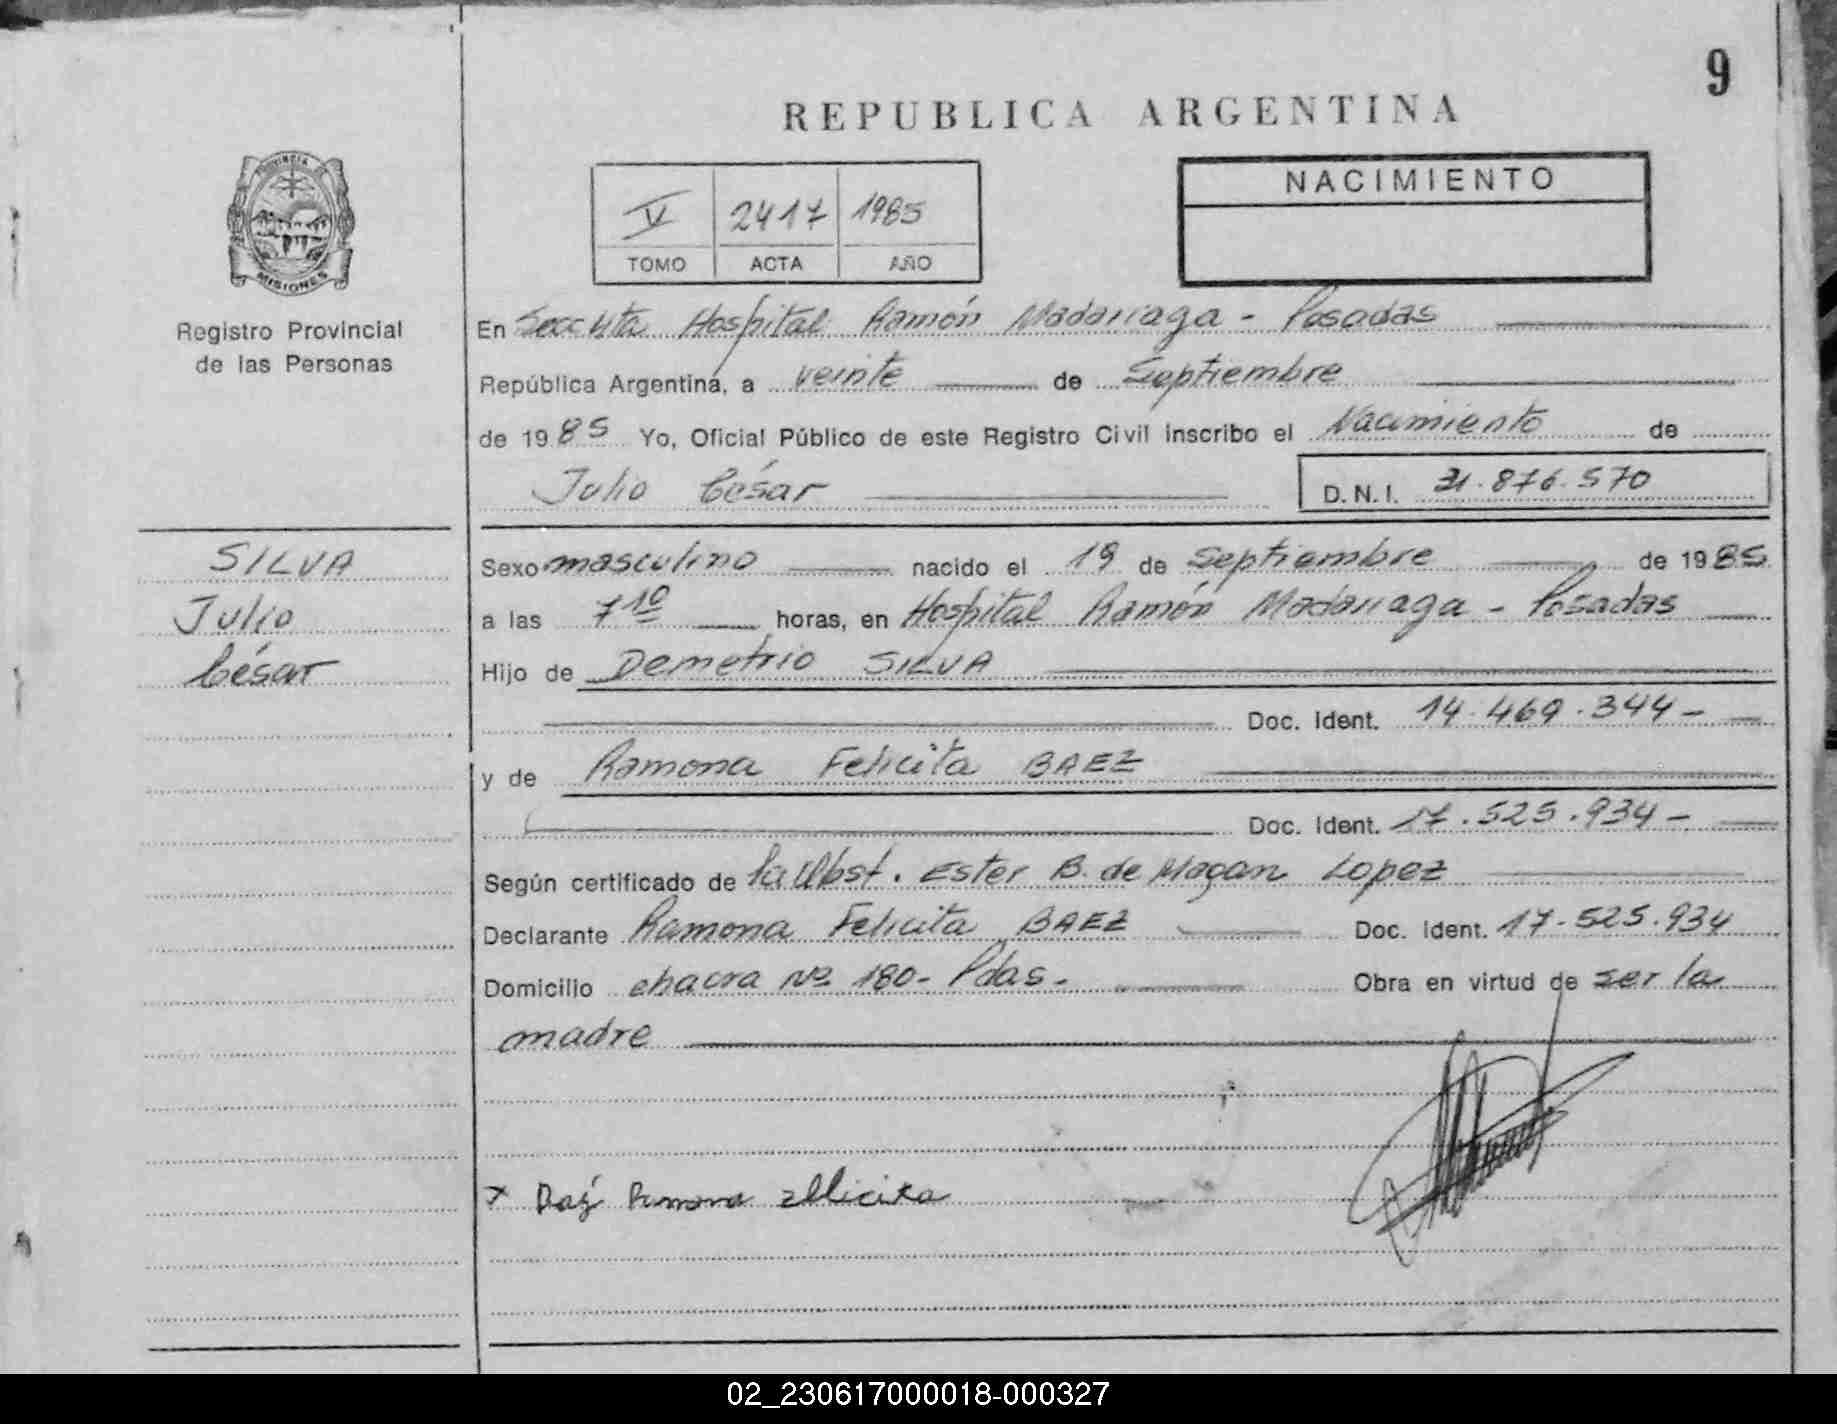 9
REPUBLICA ARGENTINA
PROVINCIA DE
MISIONES
Registro Provincial
de las Personas
V 2417 1985
TOMO ACTA AÑO
NACIMIENTO
En Hospital Ramón Madariaga - Posadas
República Argentina, a veinte de Septiembre
de 1985 Yo, Oficial Público de este Registro Civil inscribo el Nacimiento de
Julio César D.N.I. 31.876.570
SILVA
Julio
César
Sexo masculino nacido el 19 de Septiembre de 1985
a las 7 10 horas, en Hospital Ramón Madariaga - Posadas
Hijo de Demetrio SILVA
Doc. Ident. 14.469.344-
y de Ramona Felicita BAEZ
Doc. Ident. 17.525.934-
Según certificado de la Obst. Ester B. de Magan Lopez
Declarante Ramona Felicita BAEZ Doc. Ident. 17.525.934
Domicilio chacra Nº 180- Pdas- Obra en virtud de ser la
madre
x Ramona
02_230617000018-000327